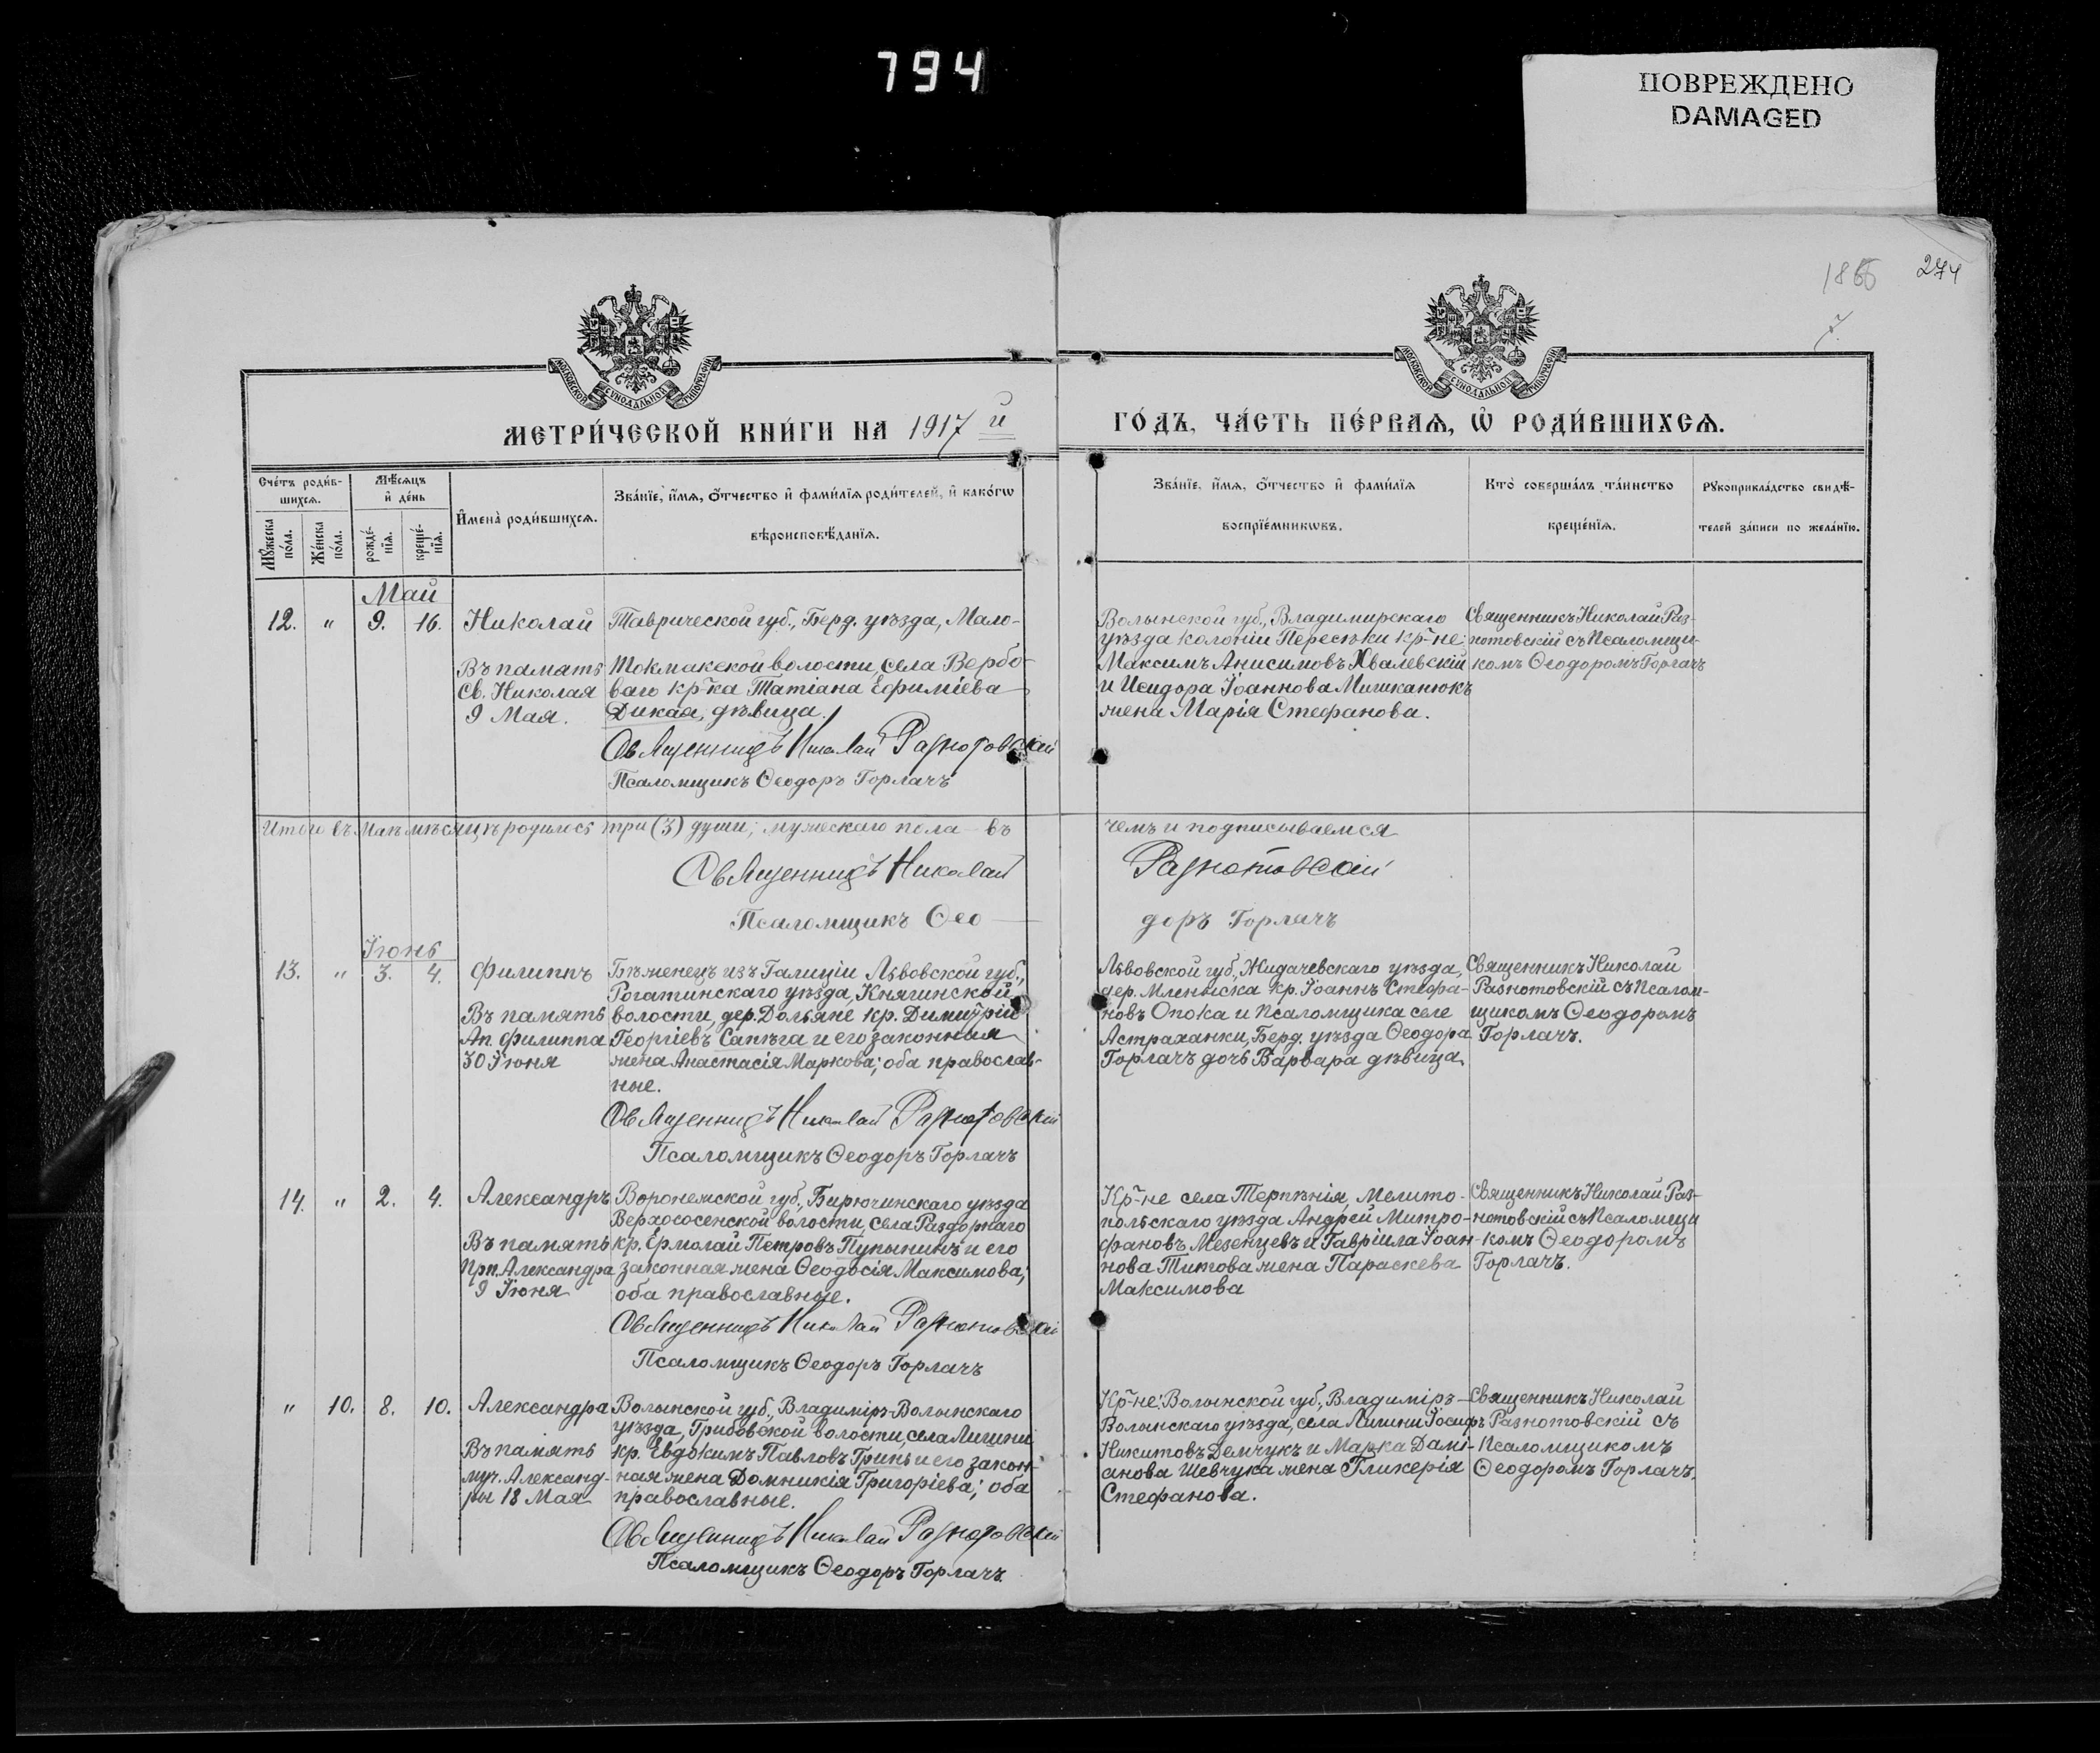 794
ПОВРЕЖДЕНО
DAMAGED
274
МОСКОВСКОЙ СѴНОДАЛЬНОЙ ТИПОГРАФІИ
МОСКОВСКОЙ СѴНОДАЛЬНОЙ ТИПОГРАФІИ
МЕТРИ́ЧЕСКОЙ КНИ́ГИ НА 1917й
ГО́ДЪ, ЧА́СТЬ ПЕ́РВАѦ, Ѡ҆ РОДИ́ВШИХСѦ.
Сче́тъ роди́в-
шихсѧ.
Мꙋ́жеска
по́ла.
Же́нска
по́ла.
Мѣ́сѧцъ
и҆ де́нь
рожде́-
нїѧ.
креще́-
нїѧ.
И҆мена̀ роди́вшихсѧ.
Зва́нїе, и҆́мѧ, ѻ҆́тчество и҆ фами́лїѧ роди́телей, и҆ како́гѡ
вѣроисповѣ́данїѧ.
Зва́нїе, и҆́мѧ, ѻ҆́тчество и҆ фами́лїѧ
воспрїе́мникѡвъ.
Кто̀ соверша́лъ та́инство
креще́нїѧ.
Рꙋкоприкла́дство свидѣ́-
телей за́писи по жела́нїю.
Май
12. " 9. 16.
Николай
Въ память
Св. Николая
9 Мая.
Таврической губ., Берд. уѣзда, Мало-
Токмакской волости, села Вербо-
ваго кр-ка Татіана Ефиміева
Дикая, дѣвица.
Священникъ Николай Разнотовскій
Псаломщикъ Ѳеодоръ Горлачъ
Волынской губ., Владимирскаго
уѣзда колоніи Пересѣки кр-не:
Максимъ Анисимовъ Хвалевскій
и Исидора Іоаннова Мишканюкъ
жена Марія Стефанова.
Священникъ Николай Раз-
нотовскій съ Псаломщи-
комъ Ѳеодоромъ Горлачъ
Итого въ Маѣ мѣсяцѣ родилось три (3) души, мужескаго пола въ
чемъ и подписываемся
Священникъ Николай
Разнотовскій
Псаломщикъ Ѳео
доръ Горлачъ
Іюнь
13. " 3. 4.
Филиппъ
Въ память
Ап. Филиппа
30 Іюня
Бѣженецъ изъ Галиціи Львовской губ.,
Рогатинскаго уѣзда, Княгинской
волости, дер. Дольяне кр. Димитрій
Георгіевъ Сапѣга и его законная
жена Анастасія Маркова; оба православ-
ные.
Священникъ Николай Разнотовскій
Псаломщикъ Ѳеодоръ Горлачъ
Львовской губ., Жидачевскаго уѣзда,
дер. Млениска кр. Іоаннъ Стефа-
новъ Опока и псаломщика селе
Астраханки, Берд. уѣзда Ѳеодора
Горлачъ дочь Варвара дѣвица
Священникъ Николай
Разнотовскій съ Псалом-
щикомъ Ѳеодоромъ
Горлачъ.
14. " 2. 4.
Александръ
Въ память
Прп. Александра
9 Іюня
Воронежской губ., Бирючинскаго уѣзда
Верхососенской волости, села Раздорнаго
кр. Ермолай Петровъ Пупынинъ и его
законная жена Ѳеодосія Максимова;
оба православные.
Священникъ Николай Разнотовскій
Псаломщикъ Ѳеодоръ Горлачъ
Кр-не села Терпѣнія, Мелито-
польскаго уѣзда Андрей Митро-
фановъ Мезенцевъ и Гавріила Іоан-
нова Титова жена Параскева
Максимова
Священникъ Николай Раз-
нотовскій съ Псаломщи
комъ Ѳеодоромъ
Горлачъ.
" 10. 8. 10.
Александра
Въ память
муч. Александ-
ры 18 Мая
Волынской губ., Владиміръ-Волынскаго
уѣзда, Грибовской волости, села Лишни
кр. Евдокимъ Павловъ Гринь и его закон-
ная жена Домникія Григоріева; оба
православные.
Священникъ Николай Разнотовскій
Псаломщикъ Ѳеодоръ Горлачъ
Кр-не: Волынской губ., Владиміръ-
Волынскаго уѣзда, села Лишни Іосифъ
Никитовъ Демчукъ и Марка Дамі-
анова Шевчука жена Гликерія
Стефанова.
Священникъ Николай
Разнотовскій съ
Псаломщикомъ
Ѳеодоромъ Горлачъ.